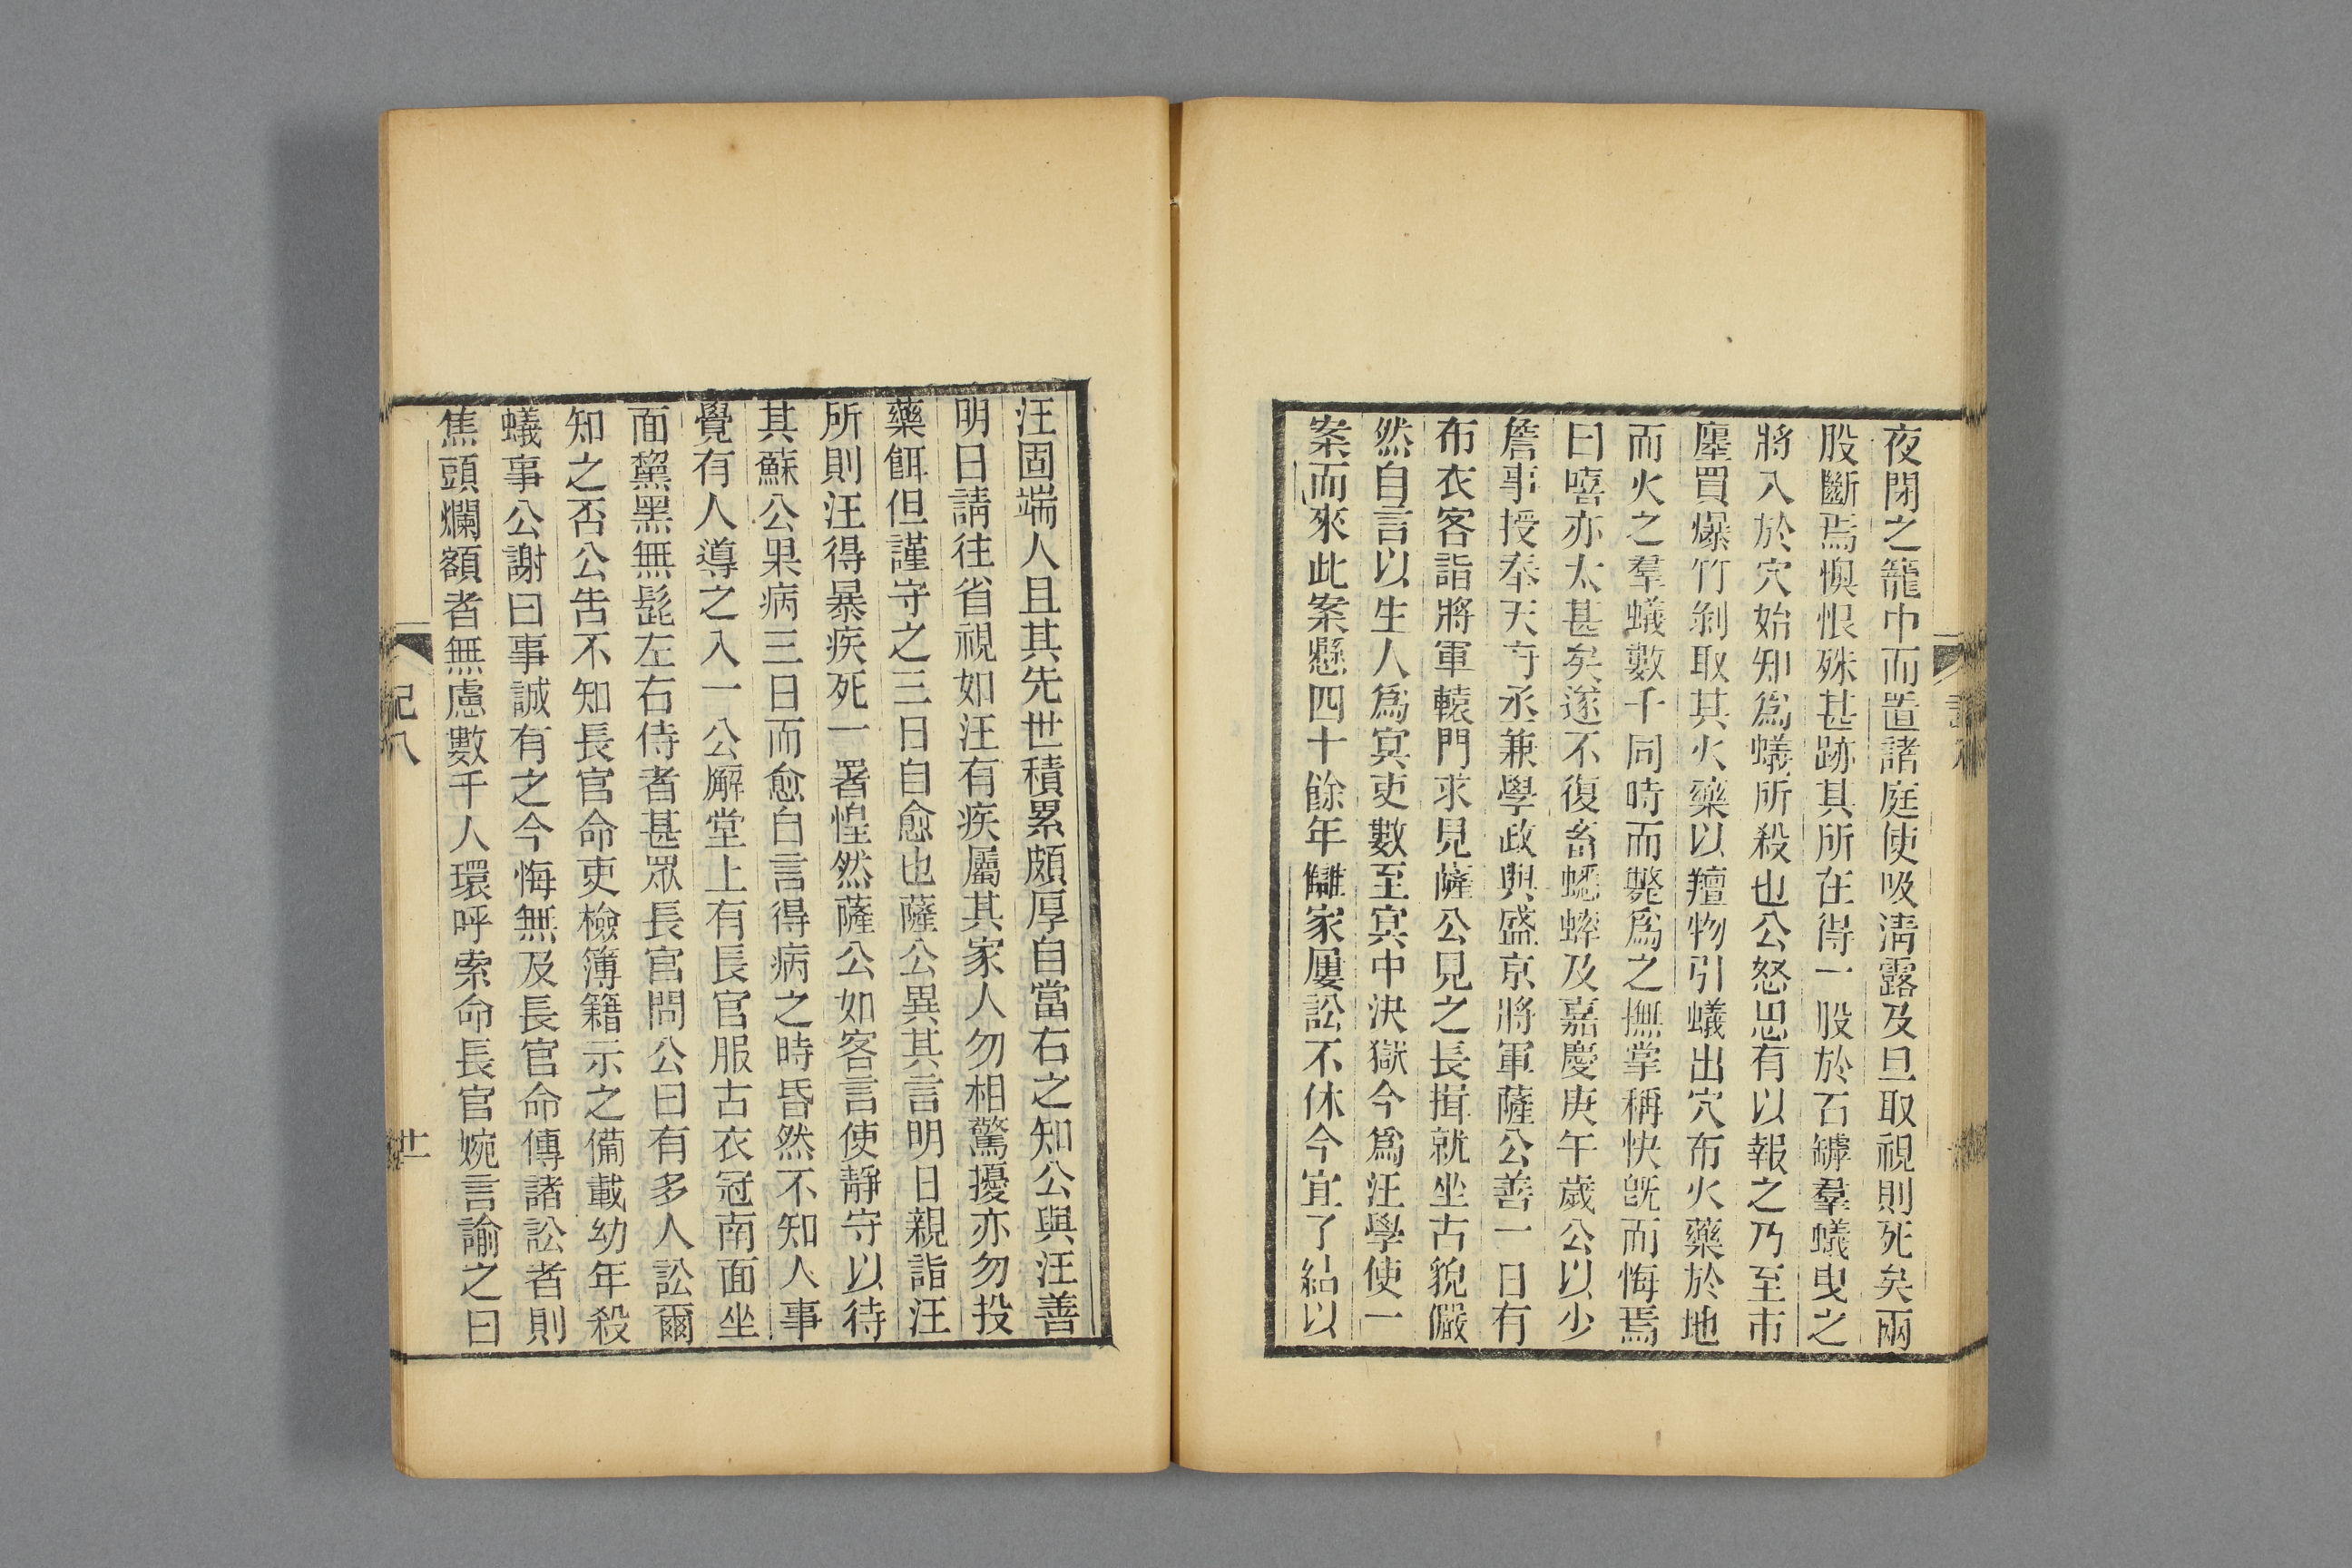 夜閉之籠中而置諸庭使吸清露及旦取視則死矣兩
股斷焉懊恨殊甚跡其所在得一股於石罅羣蟻曳之
將入於穴始知爲蟻所殺也公怒思有以報之乃至市
廛買爆竹剝取其火藥以羶物引蟻出穴布火藥於地
而火之羣蟻數千同時而斃爲之撫掌稱快旣而悔焉
曰嘻亦太甚矣遂不復畜蟋蟀及嘉慶庚午歲公以少
詹事授奉天府丞兼學政與盛京將軍薩公善一日有
布衣客詣將軍轅門求見薩公見之長揖就坐古貌儼
然自言以生人爲冥吏數至冥中決獄今爲汪學使一
案而來此案懸四十餘年讎家屢訟不休今宜了結以
汪固端人且其先世積累頗厚自當右之知公與汪善
明日請往省視如汪有疾屬其家人勿相驚擾亦勿投
藥餌但謹守之三日自愈也薩公異其言明日親詣汪
所則汪得暴疾死一署惶然薩公如客言使靜守以待
其蘇公果病三日而愈自言得病之時昏然不知人事
覺有人導之入一公廨堂上有長官服古衣冠南面坐
面黧黑無髭左右侍者甚眾長官問公曰有多人訟爾
知之否公告不知長官命吏檢簿籍示之備載幼年殺
蟻事公謝曰事誠有之今悔無及長官命傳諸訟者則
焦頭爛額者無慮數千人環呼索命長官婉言諭之曰
記八
廿